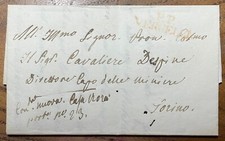 All' Illmo Signor Pron Colmo
Il Sigr Cavaliere Despine
Direttore Capo delle Miniere
con.da nuova. Casa Mora
porta no. 23.
Torino